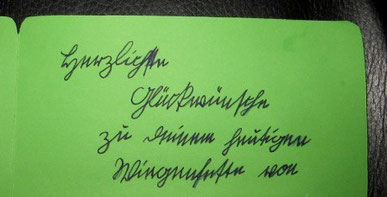 Herzlichste
Glückwünsche
zu deinem heutigen
Wiegenfeste von